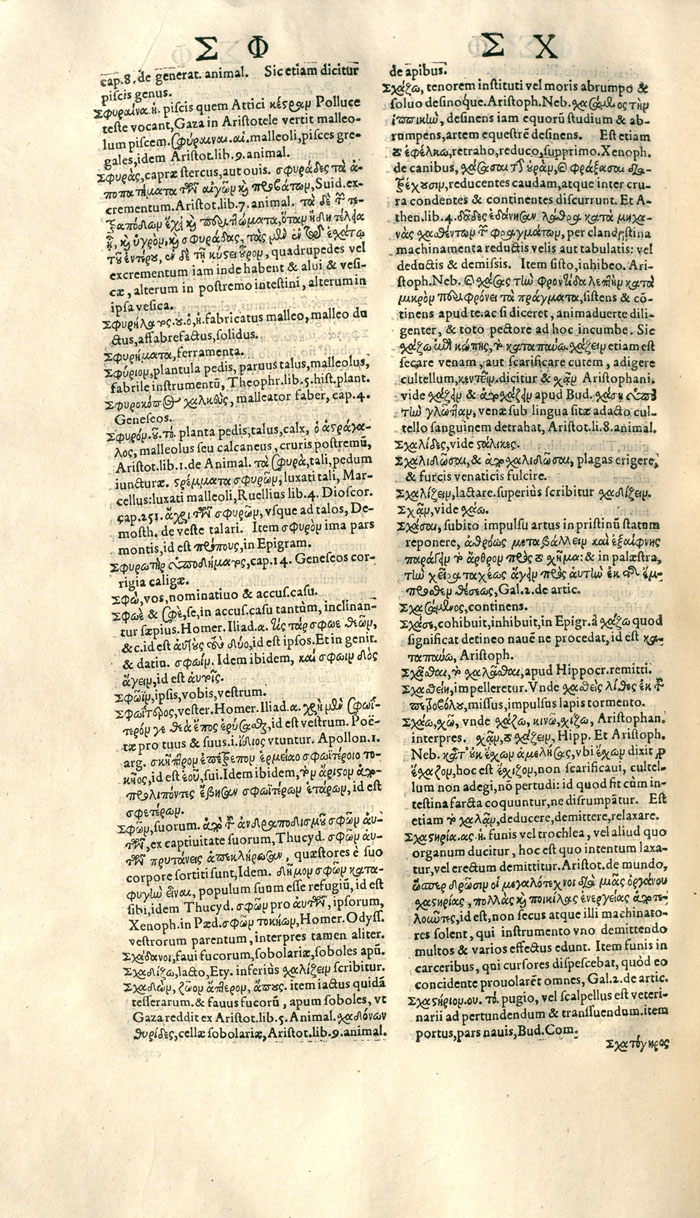 Σ Φ
cap.8. de generat. animal. Sic etiam dicitur
piscis genus.
Σφύραινα. η. piscis quem Attici κέστραν Polluce
teste vocant, Gaza in Aristotele vertit malleo-
lum piscem. σφύραιναι. αι. malleoli, pisces gre-
gales, idem Aristot. lib. 9. animal.
Σφυρὰς, capræ stercus, aut ouis. σφυράδες τὰ ἀ-
ποπατήματα τῶν αἰγῶν καὶ προβάτων, Suid. ex-
crementum. Aristot. lib. 7. animal. τὰ δὲ τε-
quadrupedes vel
excrementum iam inde habent & alui & vesi-
cæ, alterum in postremo intestini, alterum in
ipsa vesica.
Σφυρήλατος. ου. ὁ, ἡ. fabricatus malleo, malleo du
ctus, affabrefactus, solidus.
Σφυρήματα, ferramenta.
Σφύριον, plantula pedis, paruus talus, malleolus,
fabrile instrumentũ, Theophr. lib. 5. hist. plant.
Σφυροκόπος χαλκεὺς, malleator faber, cap. 4.
Geneseos.
Σφυρόν. οῦ. τὸ. planta pedis, talus, calx, ὁ ἀστράγα-
λος, malleolus seu calcaneus, cruris postremũ,
Aristot. lib. 1. de Animal. τὰ σφυρὰ, tali, pedum
iuncturæ. στρέμματα σφυρῶν, luxati tali, Mar-
cellus: luxati malleoli, Ruellius lib. 4. Dioscor.
cap. 251. ἄχρι τῶν σφυρῶν, vsque ad talos, De-
mosth. de veste talari. Item σφυρὸν ima pars
montis, id est πρόπους, in Epigram.
Σφυρωτὴρ ὑποδήματος, cap. 14. Geneseos cor-
rigia caligæ.
Σφὼ, vos, nominatiuo & accus. casu.
Σφωὲ & σφὲ, se, in accus. casu tantùm, inclinan-
tur sæpius. Homer. Iliad. α. τίς τάρ σφωε θεῶν,
&c. id est αὐτοὺς τοὺς δύο, id est ipsos. Et in genit.
& datin. σφωΐν. Idem ibidem, καὶ σφωιν δὸς
ἄγειν, id est αὐτοῖς.
Σφῶϊν, ipsis, vobis, vestrum.
Σφωΐτερος, vester. Homer. Iliad. α. χρὴ μὲν σφωΐ-
τερόν γε θεὰ ἔπος εἰρύσασθαι, id est vestrum. Poë-
tæ pro tuus & suus. i. ἴδιος vtuntur. Apollon. 1.
arg. σκῆπτρον ἐπέτρεπον ἑρμείαο σφωϊτέροιο το-
κῆος, id est ἑοῦ, sui. Idem ibidem, τὸν ἄριστον ἀπο-
προλιπόντες ἔβησαν σφωϊτέρων ἑτάρων, id est
σφετέρων.
Σφῶν, suorum. ἀπὸ τοῦ ἀνδραποδισμοῦ σφῶν αὐ-
τῶν, ex captiuitate suorum, Thucyd. σφῶν αὐ-
τῶν πρυτάνεις ἀπεκλήρωσαν, quæstores è suo
corpore sortiti sunt, Idem. δῆμον σφῶν κατα-
φυγὴν εἶναι, populum suum esse refugiũ, id est
sibi, idem Thucyd. σφῶν pro αὐτῶν, ipsorum,
Xenoph. in Pæd. σφῶν τοκήων, Homer. Odyss.
vestrorum parentum, interpres tamen aliter.
Σχάδονοι, faui fucorum, sobolariæ, soboles apũ.
Σχαδίζω, lacto, Ety. inferiùs χαλίζειν scribitur.
Σχαδὼν, item iactus quidã
tesserarum. & fauus fucorũ, apum soboles, vt
Gaza reddit ex Aristot. lib. 5. Animal. σχαδόνων
θυρίδες, cellæ sobolariæ, Aristot. lib. 9. animal.
Σ Χ
de apibus.
Σχάζω, tenorem instituti vel moris abrumpo &
soluo desinoque. Aristoph. Neb. σχασάμενος τὴν
ἱππικὴν, desinens iam equorũ studium & ab-
rumpens, artem equestrẽ desinens. Est etiam
τὸ ἐφέλκω, retraho, reduco, supprimo. Xenoph.
de canibus, σχάσασαι τὴν οὐρὰν, καὶ φράξασαι δια-
τρέχουσιν, reducentes caudam, atque inter cru
ra condentes & continentes discurrunt. Et A-
then. lib. 4.
per clandestina
machinamenta reductis velis aut tabulatis: vel
deductis & demissis. Item sisto, inhibeo. Ari-
stoph. Neb. καὶ σχάσας τὴν φροντίδα λεπτὴν κατὰ
μικρὸν περιφρόνει τὰ πράγματα, sistens & cõ-
tinens apud te. ac si diceret, animaduerte dili-
genter, & toto pectore ad hoc incumbe. Sic
σχάζω ἐπὶ κώπης, τὸ καταπαύω. σχάζειν etiam est
secare venam, aut scarificare cutem, adigere
cultellum, κεντεῖν. dicitur & σχᾶν Aristophani.
vide σχάζειν & ἀποσχάζειν apud Bud.
τὴν γλῶτταν, venæ sub lingua sitæ adacto cul-
tello sanguinem detrahat, Aristot. li. 8. animal.
Σχαλίδες, vide στάλικες.
Σχαλιδῶσαι, & ἀποσχαλιδῶσαι, plagas erigere,
& furcis venaticis fulcire.
Σχαλίζειν, lactare. superiùs scribitur σχαδίζειν.
Σχᾶν, vide σχάω.
Σχάσαι, subito impulsu artus in pristinũ statum
reponere, ἀθρόως μεταβάλλειν καὶ ἐξαίφνης
παράγειν τὸ ἄρθρον πρὸς τὸ σχῆμα: & in palæstra,
τὴν χεῖρα ταχέως ἄγειν πρὸς αὐτὴν ἐκ τῆς ἔμ-
προσθεν θέσεως, Gal. 2. de artic.
Σχασάμενος, continens.
Σχάσε, cohibuit, inhibuit, in Epigr. à σχάζω quod
significat detineo nauẽ ne procedat, id est κα-
ταπαύω, Aristoph.
Σχᾶσθαι, τὸ χαλᾶσθαι, apud Hippocr. remitti.
Σχασθείη, impelleretur. Vnde σχασθεὶς λίθος ἐκ τοῦ
πετροβόλου, missus, impulsus lapis tormento.
Σχάω, χῶ, vnde σχάζω, κινῶ, σχίζω, Aristophan.
interpres. σχᾶν, τὸ σχάζειν, Hipp. Et Aristoph.
Neb. κᾆτ' οὐκ ἔσχων ἀμελήσας, vbi ἔσχων dixit p
ἔσχαζον, hoc est ἔσχιζον, non scarificaui, cultel-
lum non adegi, nõ pertudi: id quod fit cùm in-
testina farcta coquuntur, ne disrumpãtur. Est
etiam τὸ χαλᾶν, deducere, demittere, relaxare.
Σχαστηρία. ας. ἡ. funis vel trochlea, vel aliud quo
organum ducitur, hoc est quo intentum laxa-
tur, vel erectum demittitur. Aristot. de mundo,
ὥσπερ δρῶσιν οἱ μεγαλότεχνοι διὰ μιᾶς ὀργάνου
σχαστηρίας, πολλὰς καὶ ποικίλας ἐνεργείας ἀποτε-
λοῦντες, id est, non secus atque illi machinato-
res solent, qui instrumento vno demittendo
multos & varios effectus edunt. Item funis in
carceribus, qui cursores dispescebat, quòd eo
concidente prouolarẽt omnes, Gal. 2. de artic.
Σχαστήριον. ου. τὸ. pugio, vel scalpellus est veteri-
narii ad pertundendum & transfuendum. item
portus, pars nauis, Bud. Com.
Σχατόγηρος